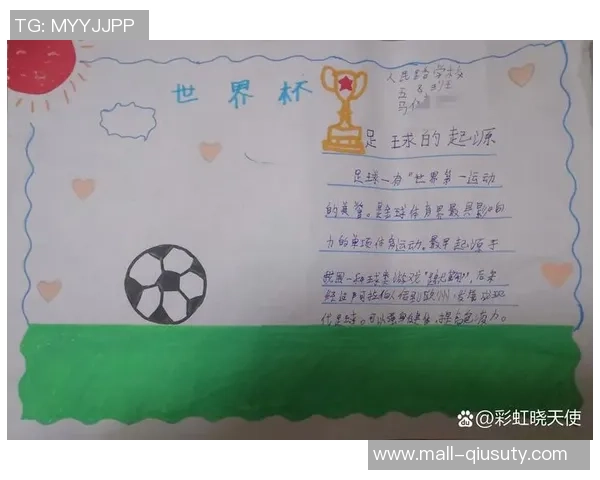 TG: MYYJJPP
世界杯
人民路学校
五
足球的起源
足球一有"世界第一运动
的美誉。是全球体育界最具影响
力的单项体育运动。最早起源于
我国一种球类游戏"蹴鞠",后来
经过阿拉伯人传到欧洲,发展成现
代足球。可以强身健体,提高免疫力。
@彩虹晓天使
www.mall-qiusuty.com